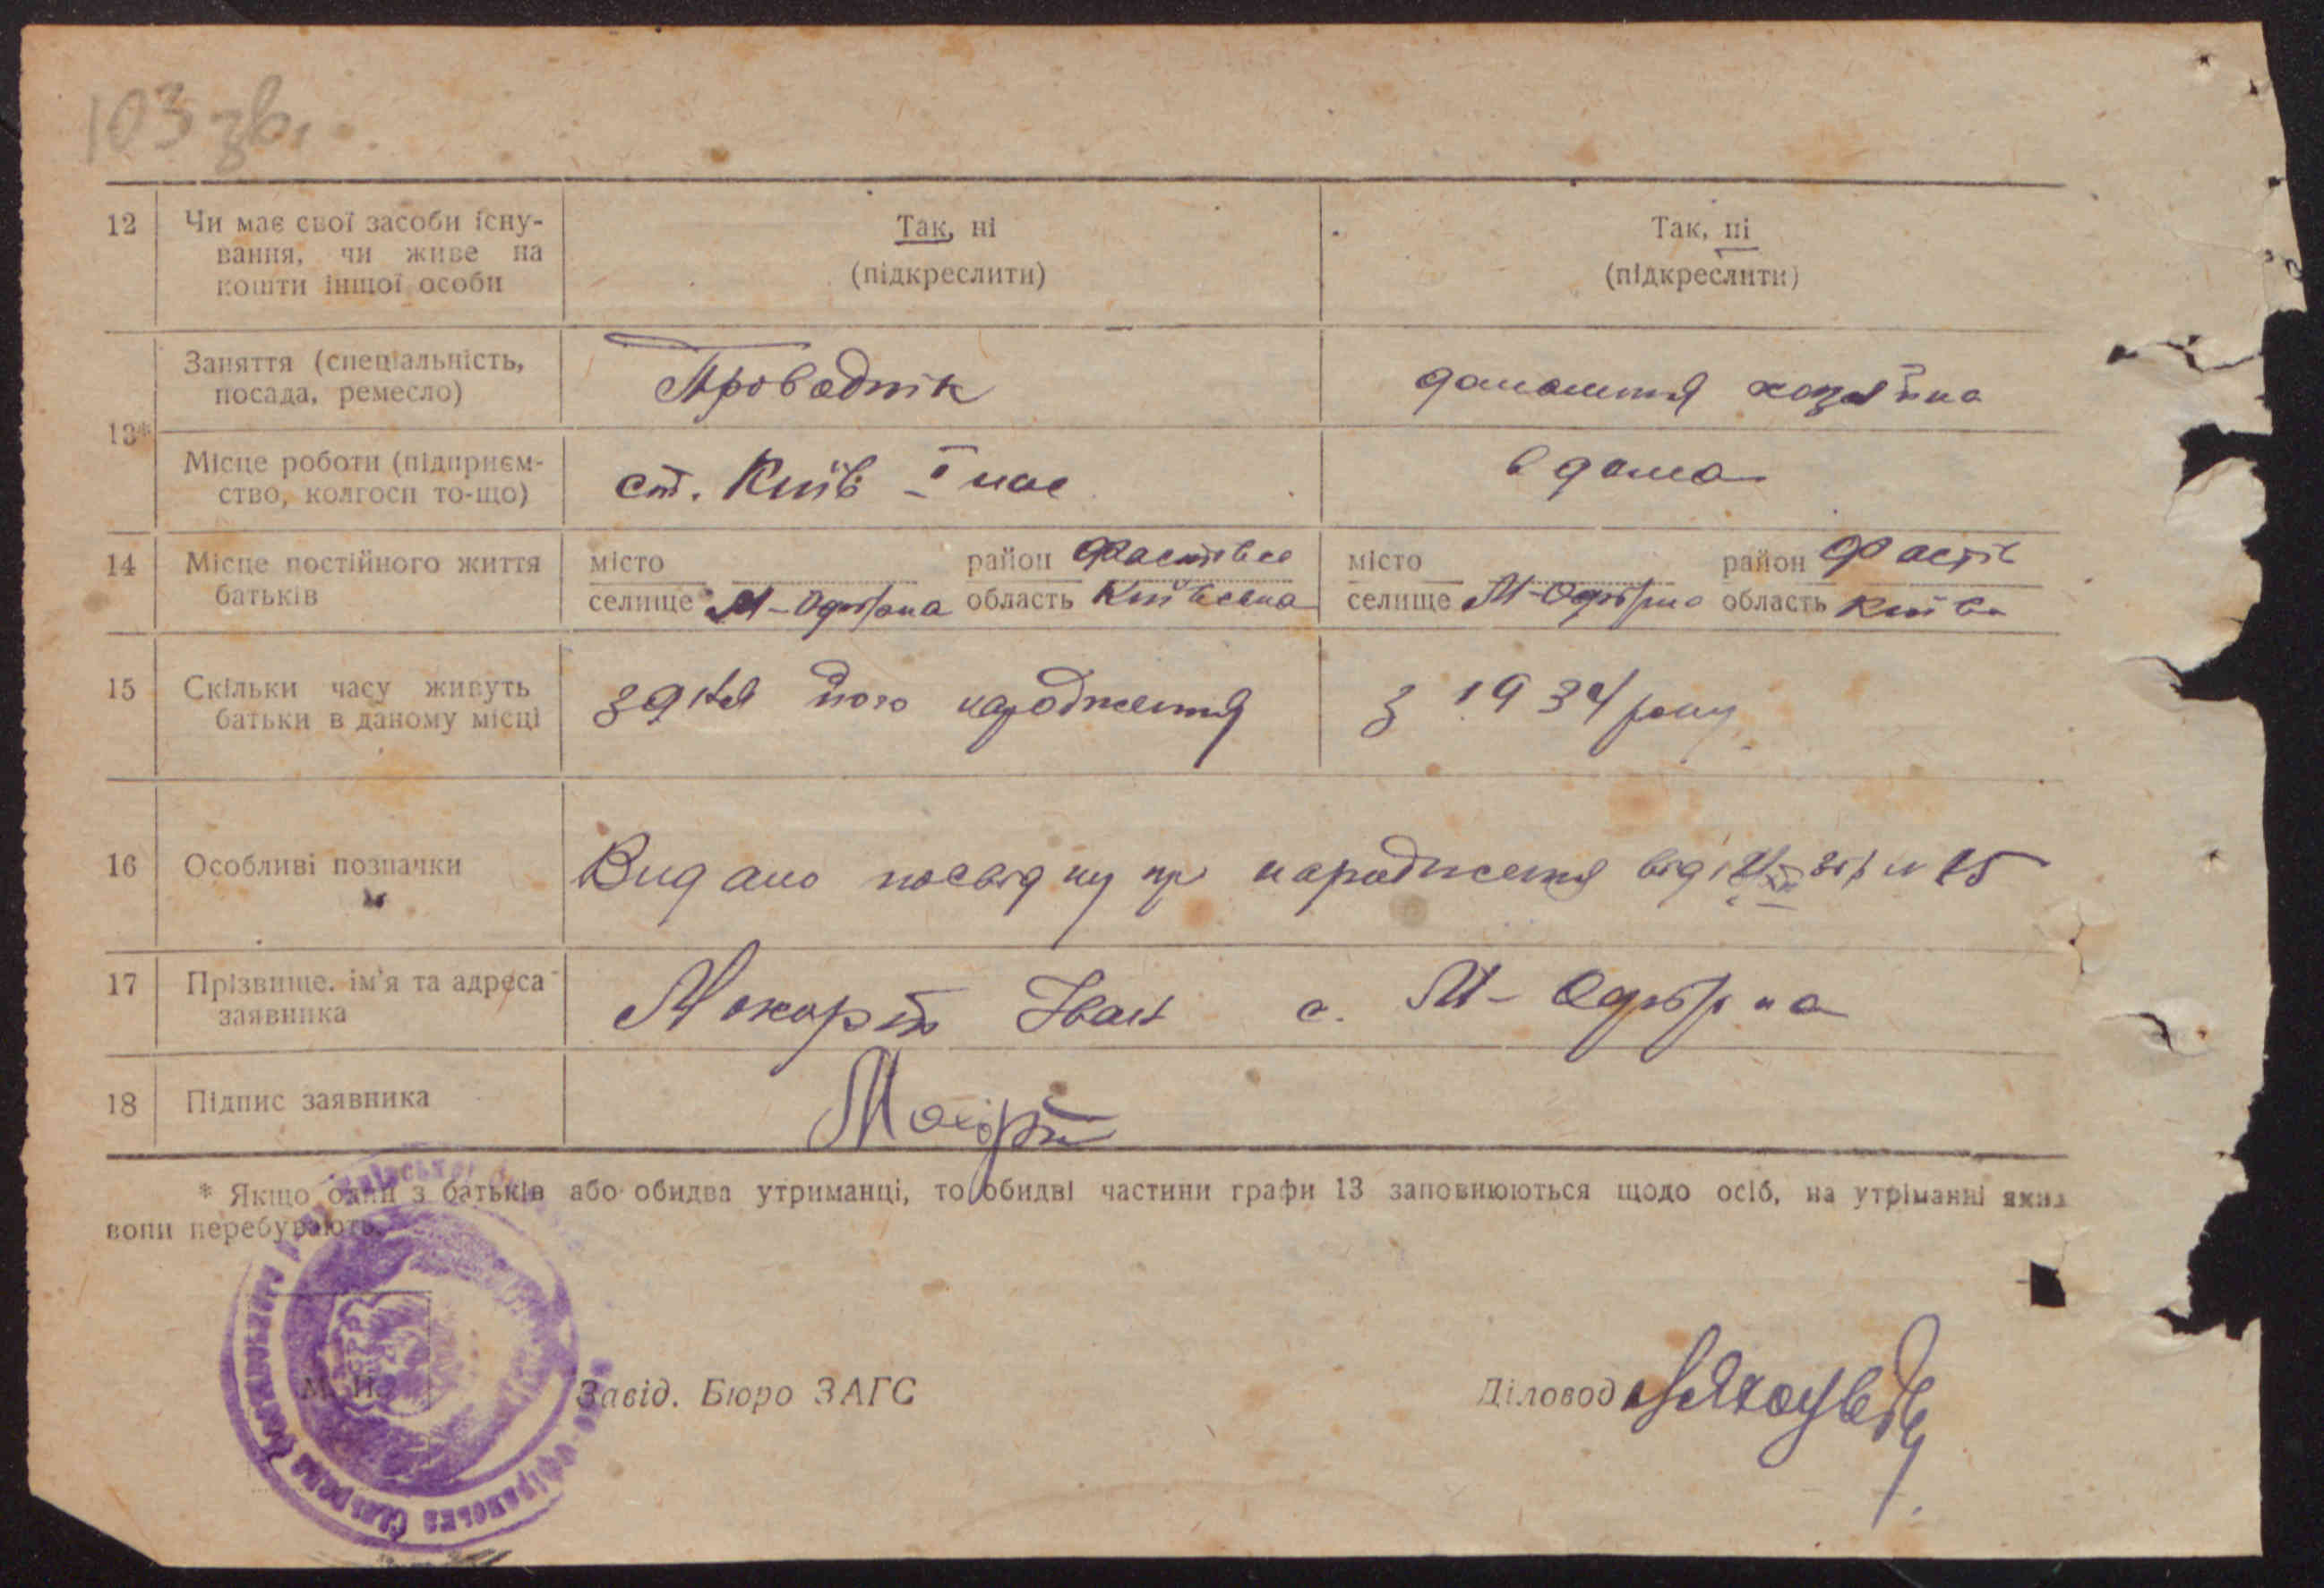 103 зв.
12 Чи має свої засоби існу- Так, ні Так, ні
вання, чи живе на (підкреслити) (підкреслити)
кошти іншої особи
13* Заняття (спеціальність, Проводнік домашня хазяйка
посада, ремесло)
Місце роботи (підприєм- ст. Київ I пас в дома
ство, колгосп то-що)
14 Місце постійного життя місто район Фастівсь місто район Фастів
батьків селище М-Офірна область Київська селище М-Офірна область Київ
15 Скільки часу живуть з дня його народження з 1934 року
батьки в даному місці
16 Особливі позначки Видано посвідку про народження від № 15
17 Прізвище, ім'я та адреса Іван с. М-
заявника
18 Підпис заявника
* Якщо один з батьків або обидва утриманці, то обидві частини графи 13 заповнюються щодо осіб, на утріманні яких
вони перебувають.
М. П.
Завід. Бюро ЗАГС Діловод